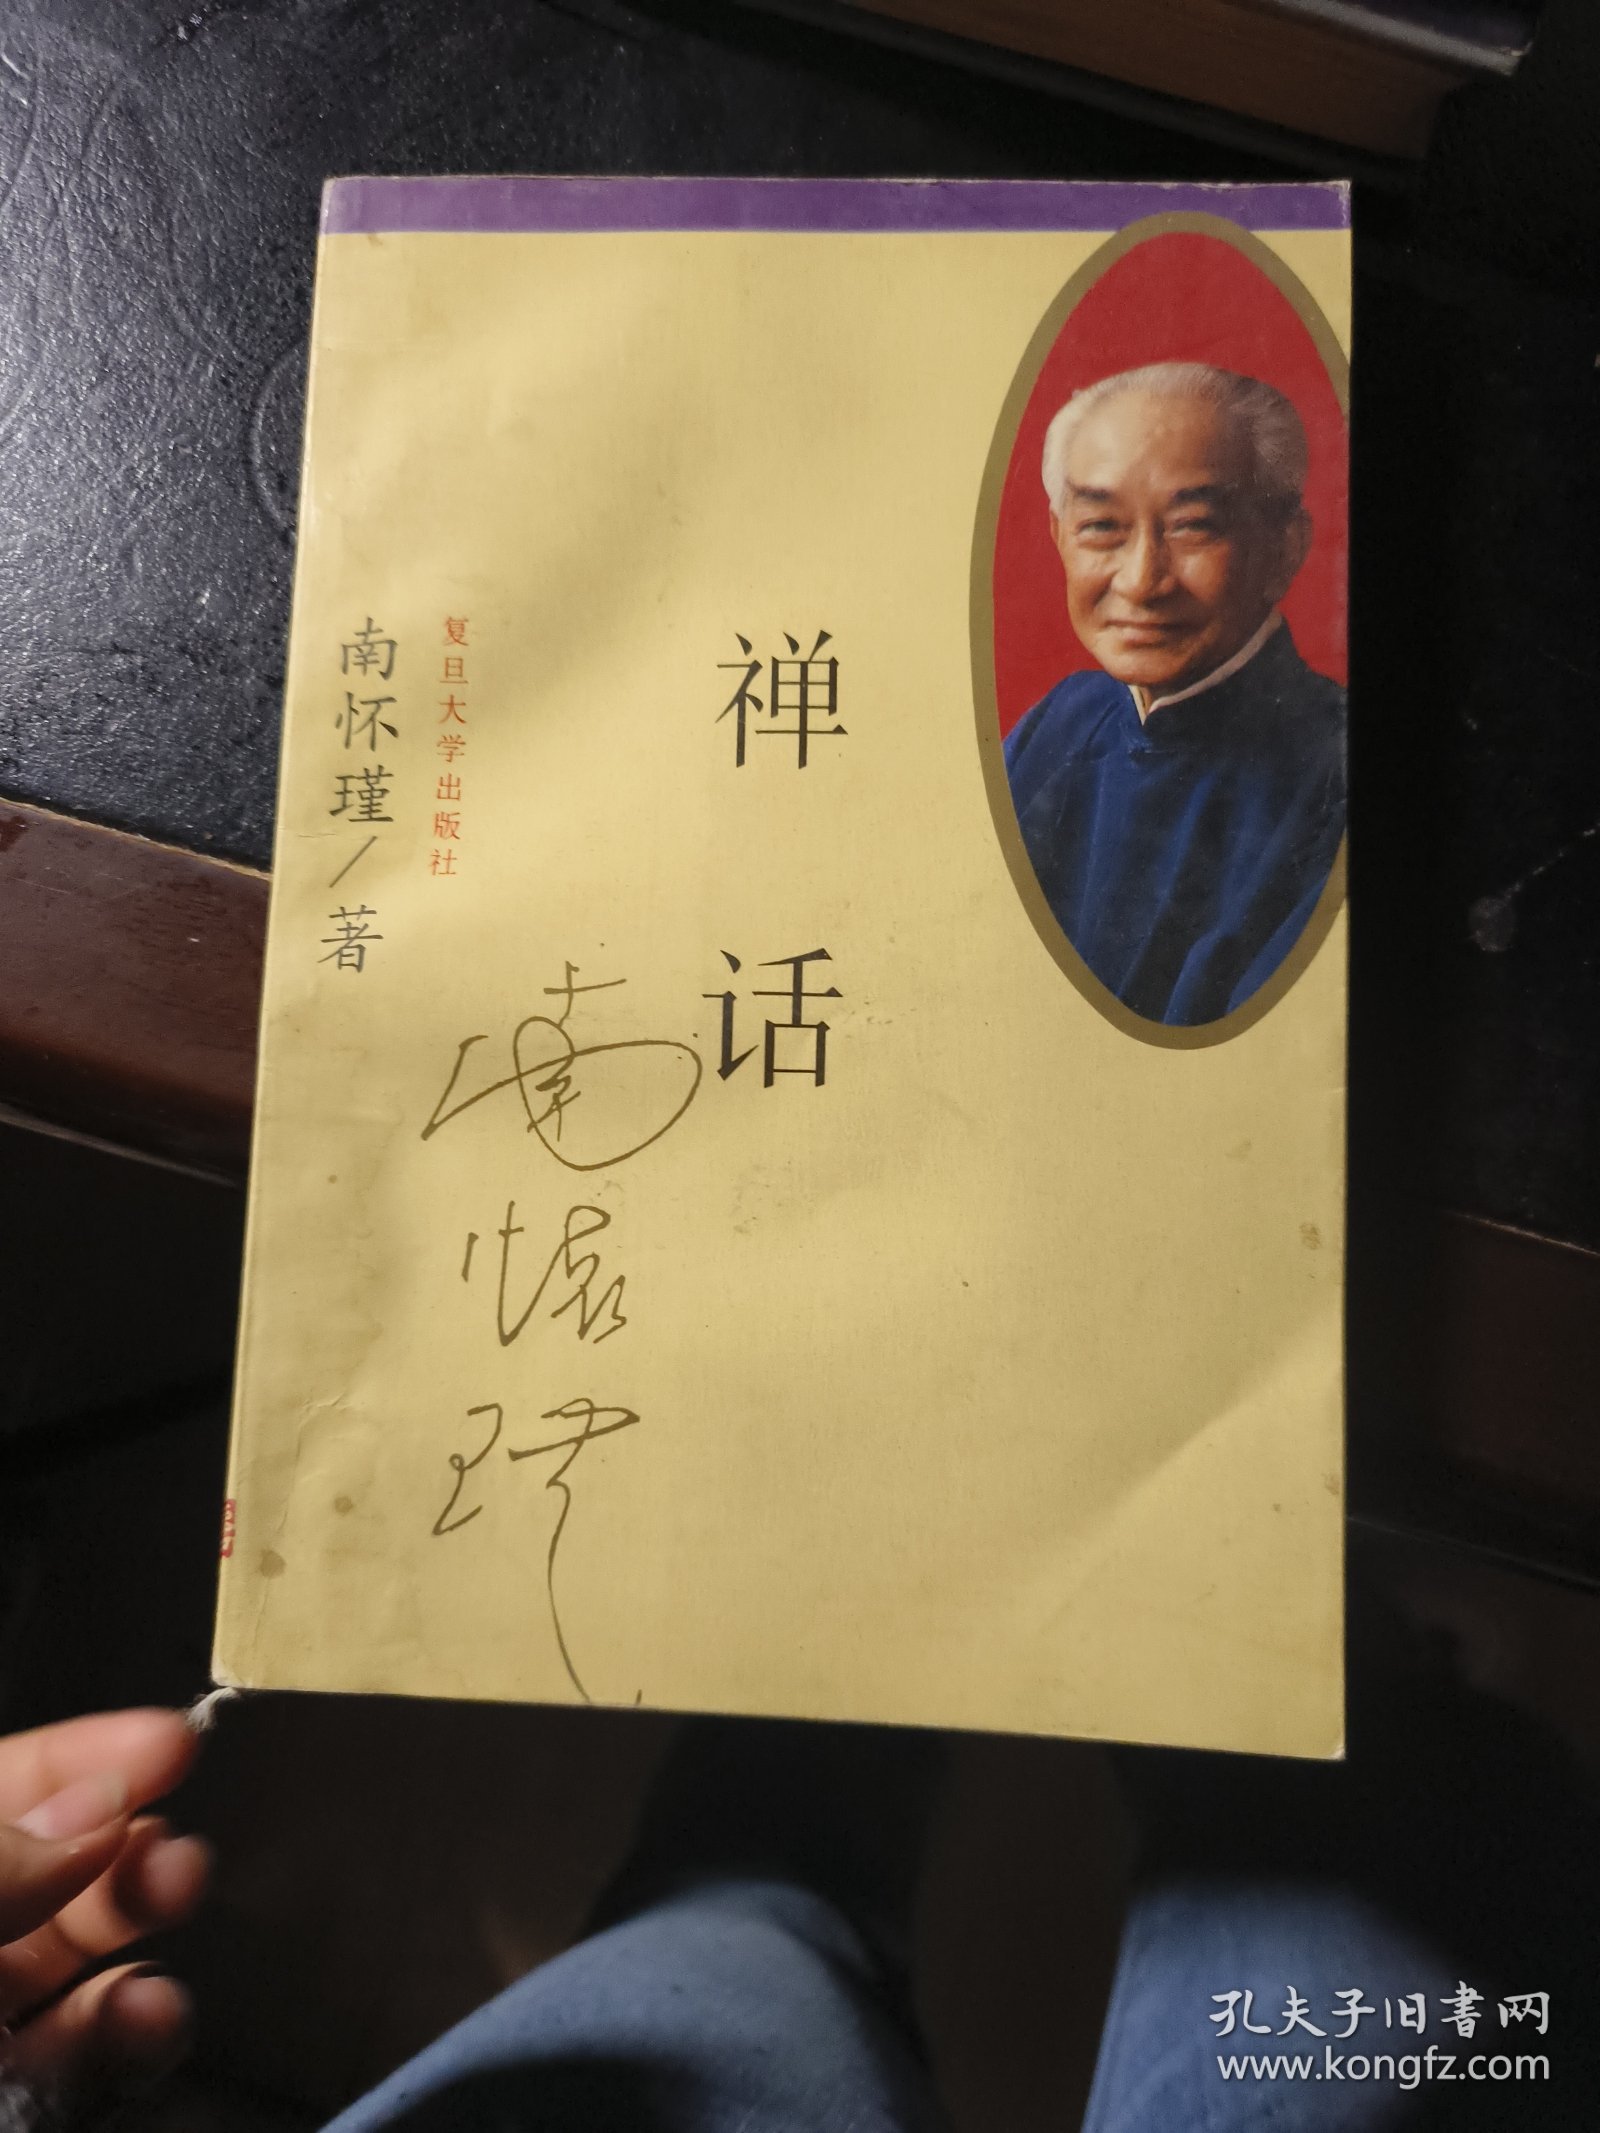 禅话
复旦大学出版社
南怀瑾/著
南懷瑾
孔夫子旧書网
www.kongfz.com